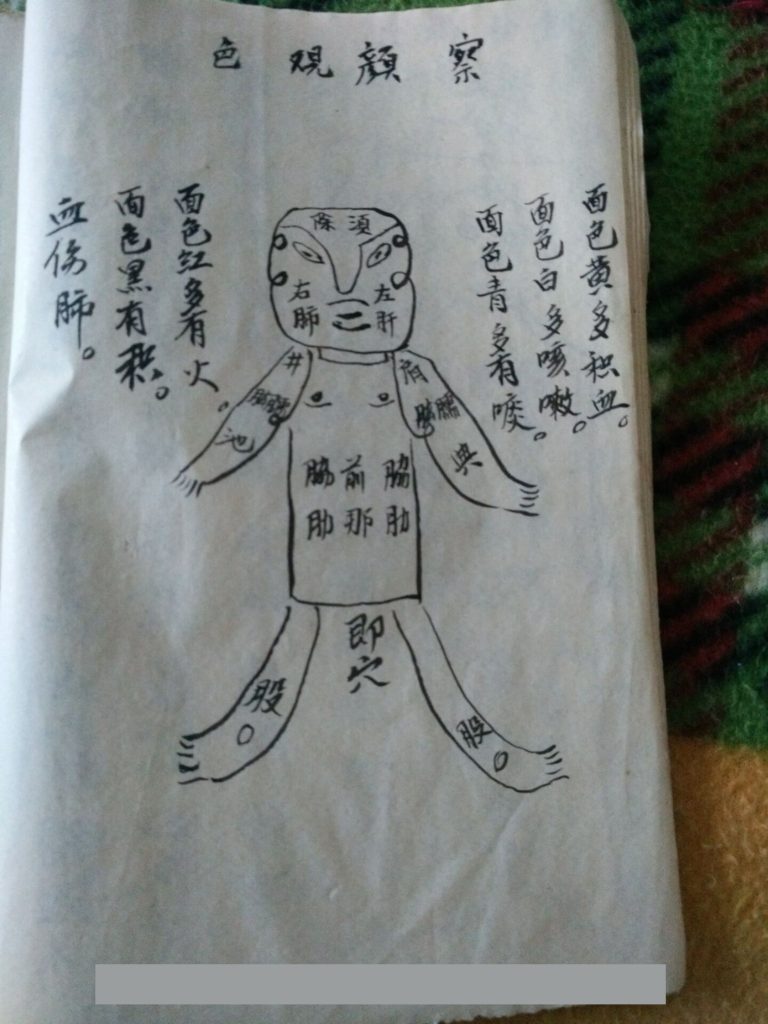 察顔观色
面色黄多积血。
面色白多咳嗽。
面色青多有痰。
面色红多有火。
面色黑有积。
血伤肺。
須
除
左肝
右肺
井
池
肩
與
脇肋
前那
脇肋
即穴
股
股